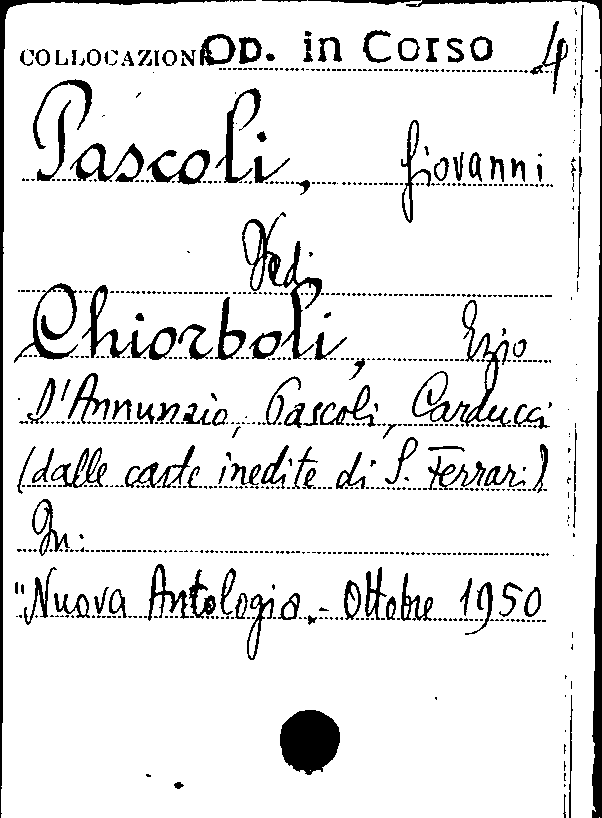 COLLOCAZIONE Op. in Corso 4
Pascoli, Giovanni
Vedi
Chiorboli, Ezio
D'Annunzio, Pascoli, Carducci
(dalle carte inedite di S. Ferrari)
In:
"Nuova Antologia.- Ottobre 1950